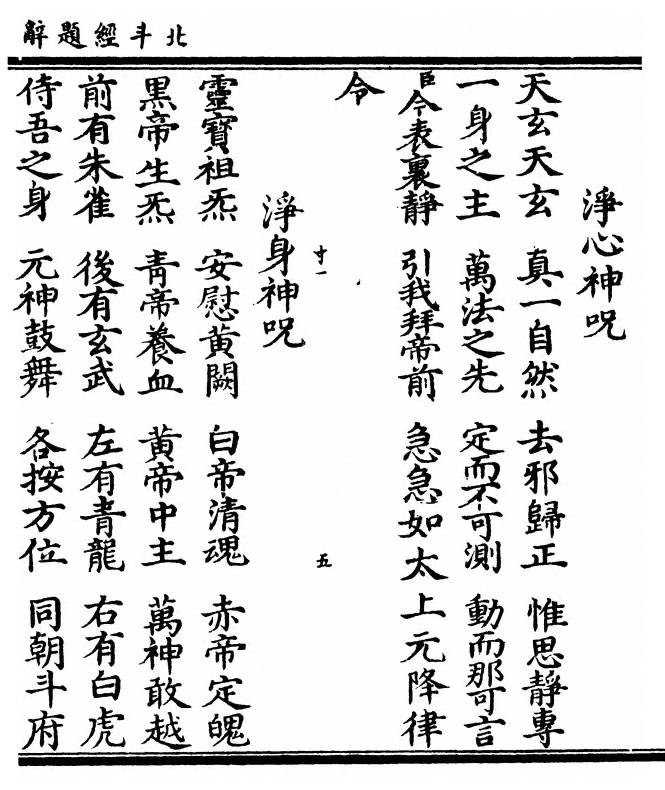 北斗經題辭
淨心神呪
天玄天玄 真一自然 去邪歸正 惟思靜專
一身之主 萬法之先 定而不可測 動而那可言
臣令表裏靜 引我拜帝前 急急如太上元降律
令
寸一 五
淨身神呪
靈寶祖炁 安慰黃闕 白帝清魂 赤帝定魄
黑帝生炁 青帝養血 黃帝中主 萬神敢越
前有朱雀 後有玄武 左有青龍 右有白虎
侍吾之身 元神鼓舞 各按方位 同朝斗府